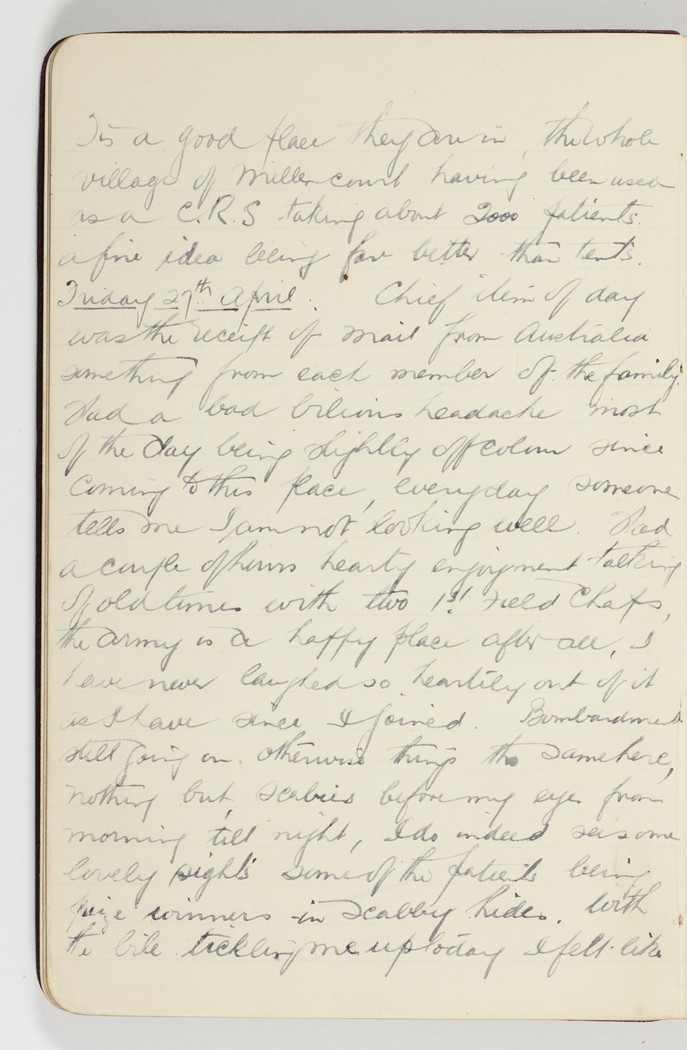 Tis a good place they are in, the whole
village of Millencourt having been used
as a C.R.S taking about 2000 patients.
a fine idea being far better than tents.
Friday 27th April. Chief item of day
was the receipt of mail from Australia
something from each member of the family.
Had a bad bilious headache most
of the day being slightly off colour since
coming to this place, everyday someone
tells me I am not looking well. Had
a couple of hours hearty enjoyment talking
of old times with two 1st Field Chaps,
the army is a happy place after all, I
have never laughed so heartily out of it
as I have since I joined. Bombardment
still going on otherwise things the same here,
nothing but scabies before my eyes from
morning till night, I do indeed see some
lovely sights some of the patients being
prize winners in scabby hides. With
the bile tickling me up today I felt like